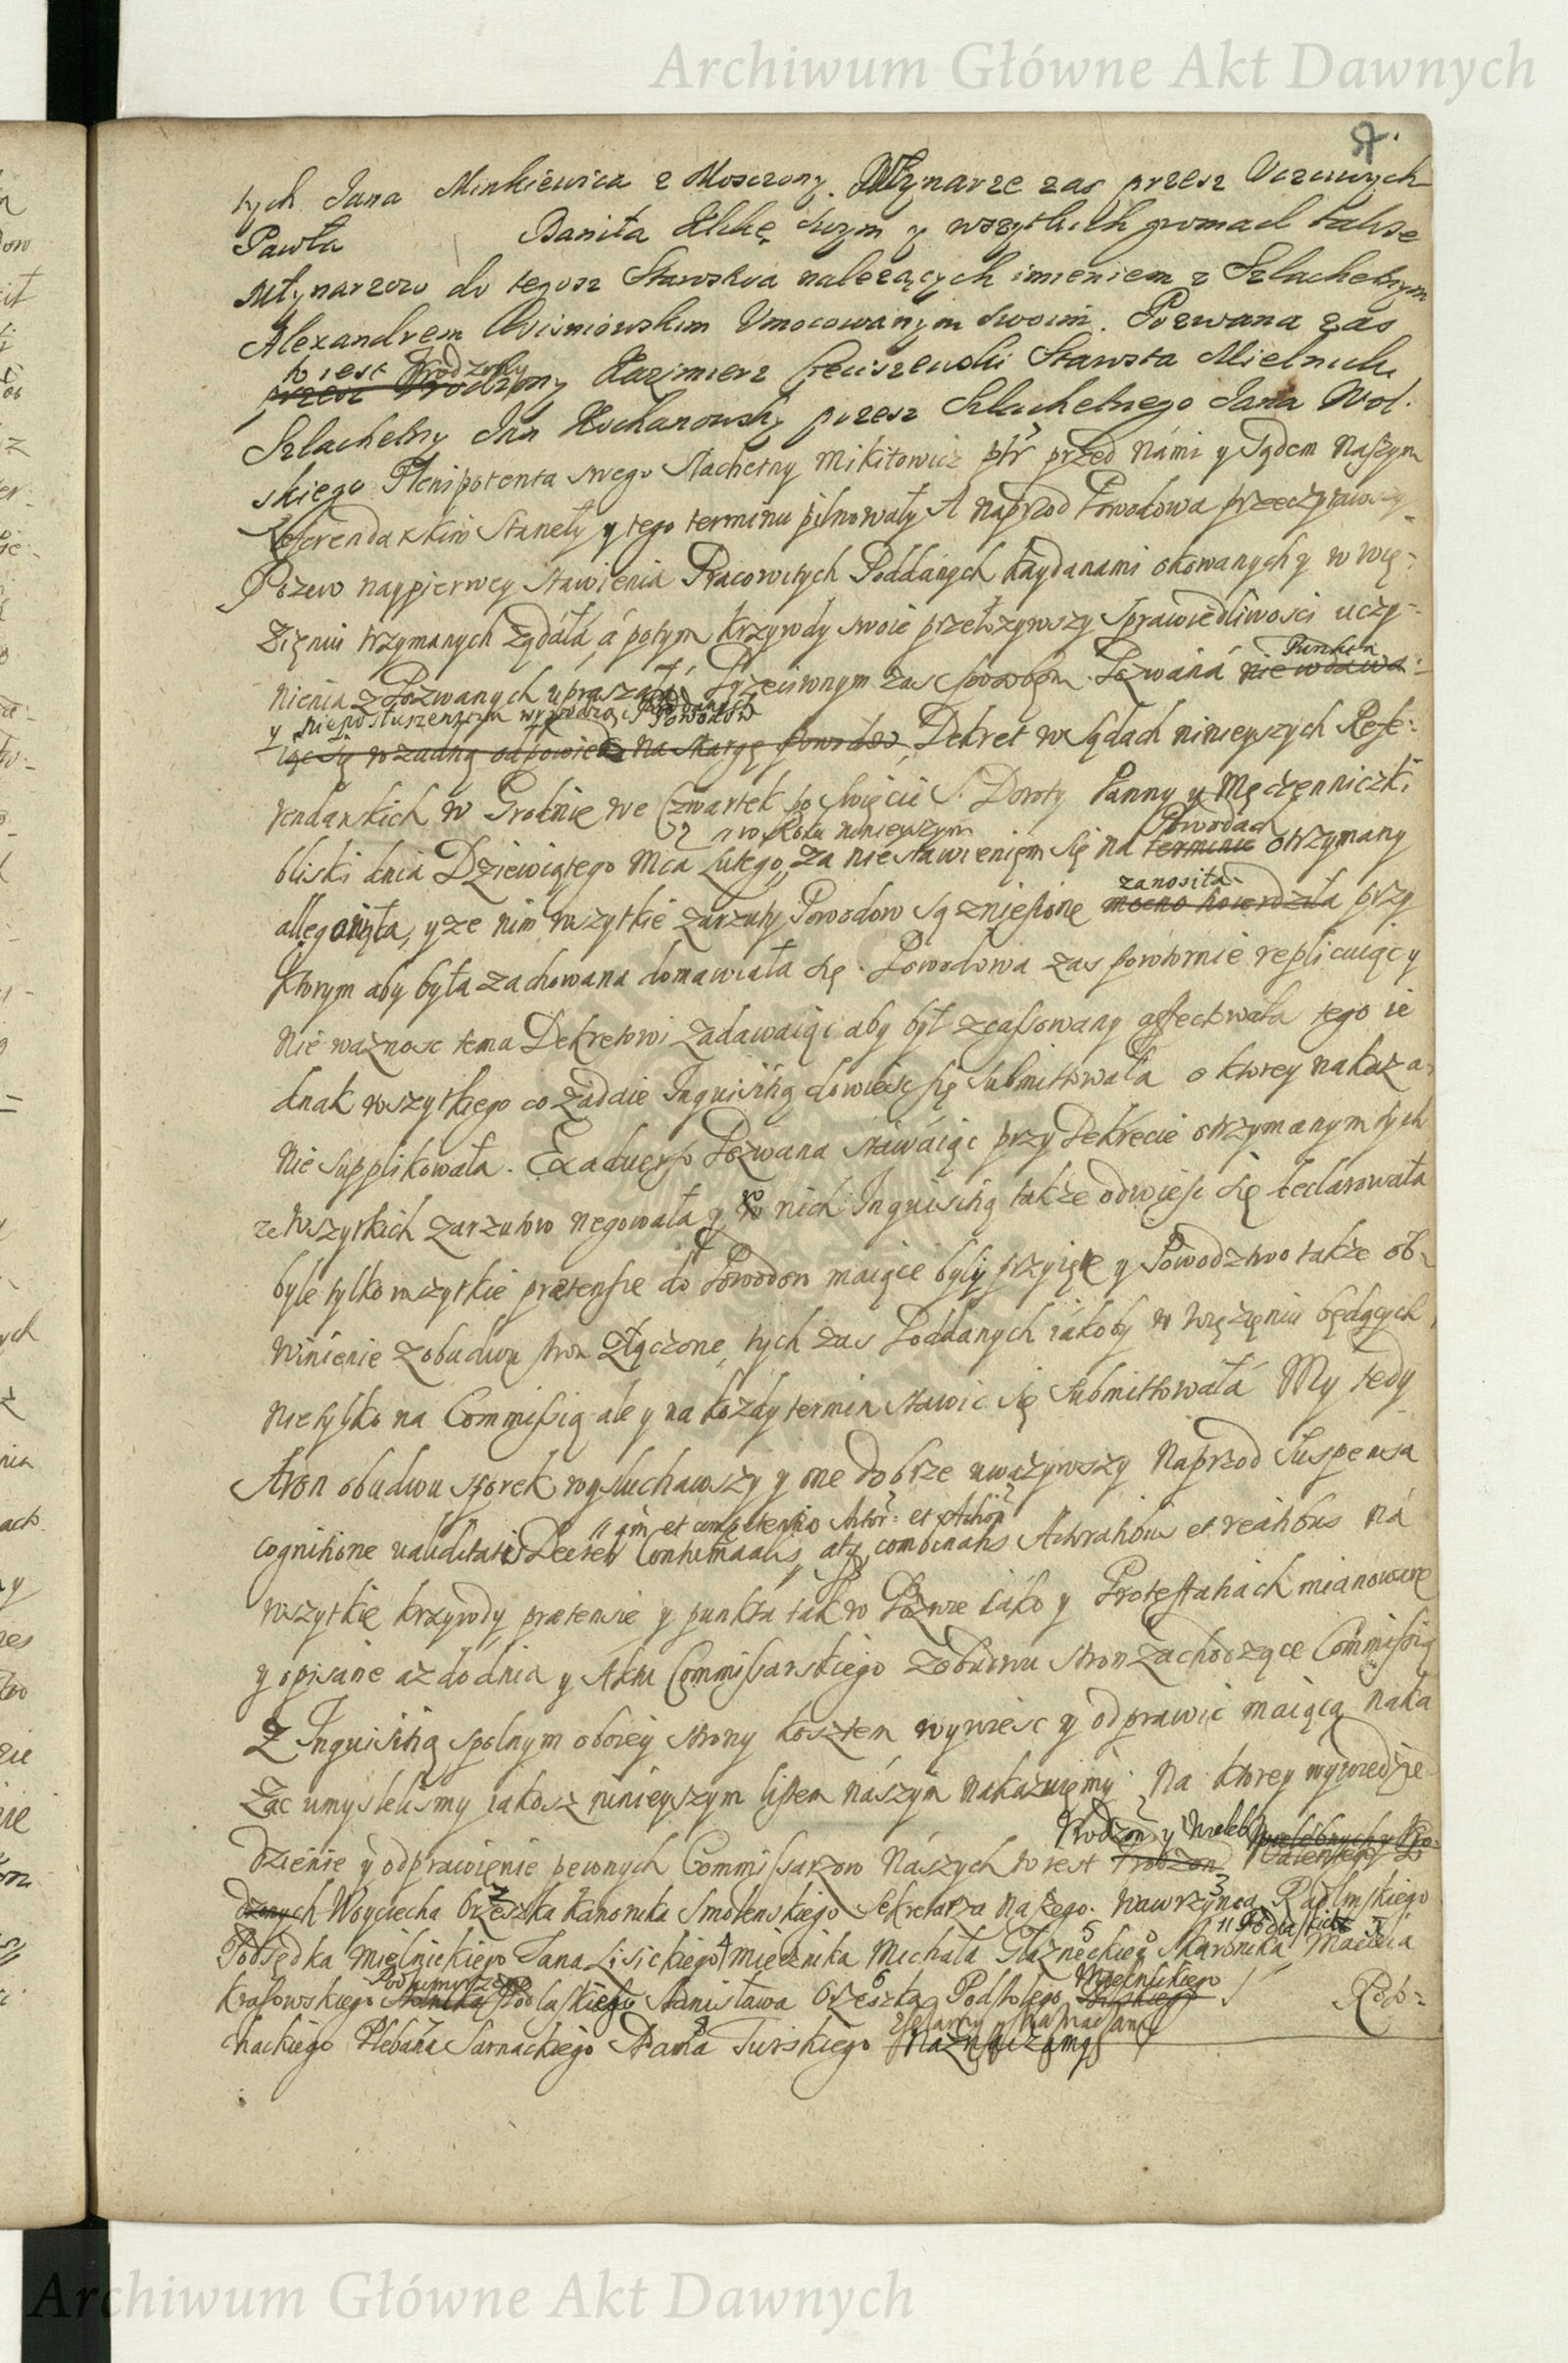 Archiwum Główne Akt Dawnych
tych Jana Minkiewicza z Mosczony. Młynarze zas przesz Uczciwych
Pawła Daniła Ilkę swym y wszytkich gromad takze
Młynarzow do tegosz Starostwa nalezących imieniem z Szlachetnym
Alexandrem Wisniowskim Umocowanym swoim. Pozwana zas
to iest Urodzony
przesz Urodzony Kazimierz Stawsta Mielnicki
Szlachetny Jan Kochanowsky przesz Szlachetnego Jana Wol:
skiego Plenipotenta swego Slachetny Mikitowicz ptr przed námi y Sądem Naszym
Referendarskim Staneły y tego terminu pilnowały A naprzod Powodowa przeczytawszy
Pozew naypierwey stawienia Pracowitych Poddanych kaydanami okowanych y w wię=
zieniu trzymanych ządáłá á potym krzywdy swoie przełozywszy Sprawiedliwosci uczy=
nienia z Pozwanych upraszáłá. Przeciwnym zas sposobem Pozwaná nie wdawa=
Punkta
y nieposłuszenstwa Powodow
iąc się w zadną odpowiedz na skargę Powodow Dekret w Sądach ninieyszych Refe:
rendarskich w Grodnie we Czwartek po Swięcie S. Doroty Panny y Męczenniczki
w Roku ninieyszym Powodach
bliski dnia Dziewiątego Mca Lutego, za niestawieniem się na terminie otrzymany
zanosiła
allegowała, y ze nim wszytkie zarzuty Powodow są zniesione mocno twierdziła przy
ktorym aby była zachowana domawiała się. Powodowa zas powtornie replicuiąc y
nie waznosc tema Dekretowi zadawaiąc aby był zcassowany affectowała tego ie
dnak wszytkiego co zadaie Inquisitią dowiesc się submittowała o ktorey nakaza=
nie supplikowała. Ex adverso Pozwana stawáiąc przy Dekrecie otrzymanym tych
ze wszytkich zarzutow negowała y w nich Inquisitią także odwiesc się declarowała
byle tylko wszytkie prætensie do Powodow maiące były przyięte y Powodztwo także ob=
winienie z obudwu stron złączone, tych zas Poddanych iákoby w więzieniu będących
nie tylko na Commissią ale y na kozdy termin stawic się submittowáłá My tedy
stron obudwu sporek wysłuchawszy y one dobrze uwazywszy Naprzod Suspensa
cognitione validitatis Decreti Contumacialis, atq combinatis Actoratibus et reatibus ná
wszytkie krzywdy prætensie y punkta tak w Pozwie iáko y Protestatiach mianowane
y opisane az do dnia y Aktu Commissarskiego z obudwu stron zachodzące Commissią
Z Inquisitią spolnym oboiey strony kosztem wywiesc y odprawic maiącą naka
zac umyslelismy iakosz ninieyszym listem nászym nakazuiemy. Na ktorey
Urodzon y Wieleb
dzienie y odprawienie pewnych Commissarzow Nászych to iest Urodzon
dzonych Woyciecha Orzeszka Kanonika Smolenskiego Sekretarza Naszego. Wawrzynca Radlinskiego
Podlaskich
Podsędka Mielnickiego Jana Lisickiego Miecznika Michała Skarbnika Macieia
Mielnickiego
Krasowskiego Podlaskiego Stanisława Orzeszka Podstolego Rep=
chackiego Plebana Sarnackiego Pawła Turskiego Naznaczamy
Archiwum Główne Akt Dawnych